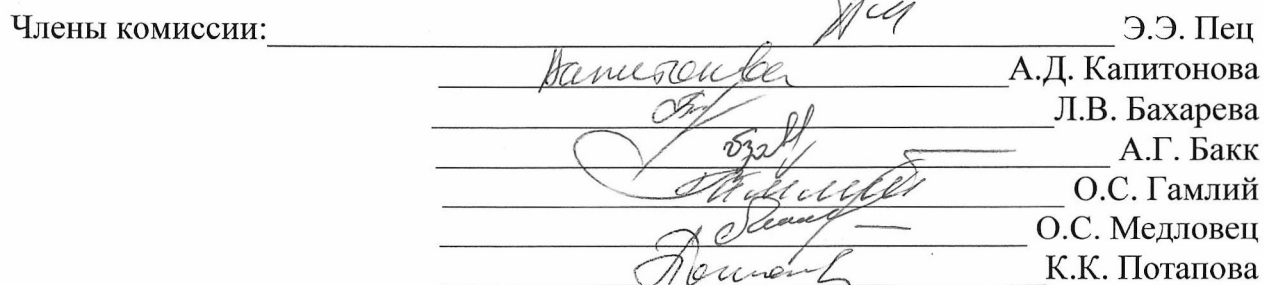 Члены комиссии: Э.Э. Пец
А.Д. Капитонова
Л.В. Бахарева
А.Г. Бакк
О.С. Гамлий
О.С. Медловец
К.К. Потапова